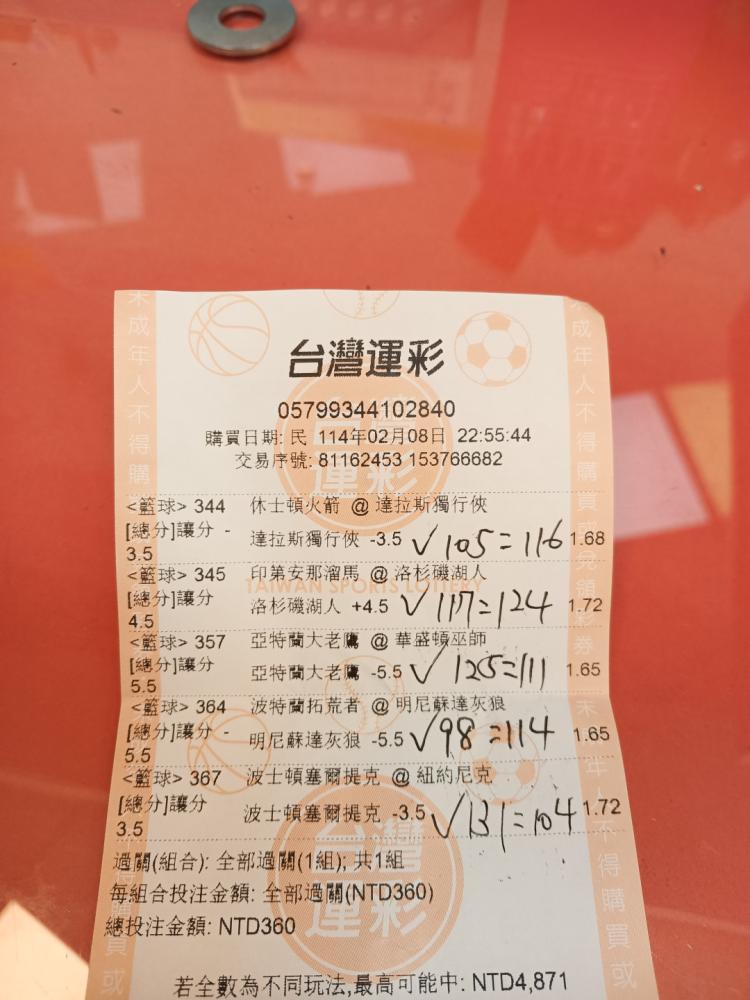 台灣運彩
05799344102840
購買日期: 民 114年02月08日 22:55:44
交易序號: 81162453 153766682
<籃球> 344 休士頓火箭 @ 達拉斯獨行俠
[總分]讓分 - 達拉斯獨行俠 -3.5 √ 105=116 1.68
3.5
<籃球> 345 印第安那溜馬 @ 洛杉磯湖人
TAIWAN SPORTS LOTTERY
[總分]讓分 洛杉磯湖人 +4.5 √ 117=124 1.72
4.5
<籃球> 357 亞特蘭大老鷹 @ 華盛頓巫師
[總分]讓分 亞特蘭大老鷹 -5.5 √ 125=111 1.65
5.5
<籃球> 364 波特蘭拓荒者 @ 明尼蘇達灰狼
[總分]讓分 - 明尼蘇達灰狼 -5.5 √ 98=114 1.65
5.5
<籃球> 367 波士頓塞爾提克 @ 紐約尼克
[總分]讓分 波士頓塞爾提克 -3.5 √ 131=104 1.72
3.5
過關(組合): 全部過關(1組); 共1組
每組合投注金額: 全部過關(NTD360)
總投注金額: NTD360
若全數為不同玩法,最高可能中: NTD4,871
未成年人不得購買或
未成年人不得購買或兌領彩券
台灣運彩
台灣運彩